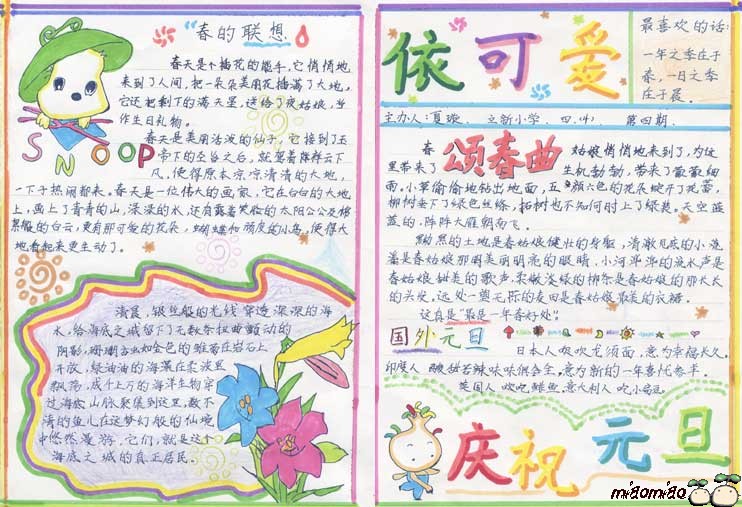 “春的联想
春天是个插花的能手，它悄悄地
来到了人间，把一朵朵美丽花插满了大地。
它还把剩下的满天星，送给了夜姑娘，当
作生日礼物。
春天是美丽活泼的仙子，它接到玉
帝下的圣旨之后，就驾着降祥云下
凡，使得原本凉凉清清的大地，
一下子热闹都来。春天是一位伟大的画家，它在白白的大地
上，画上了青青的山，深深的水，还有露着笑脸的太阳公公及
黑般的白云，更有那可爱的花朵，蝴蝶和顽皮的小鸟，使得大
地看起来更生动了。
SNOOP
清晨，银丝般的光线穿透深深的海
水，给海底之城留下了无数条扭曲颤动的
阴影，珊瑚丛如金色的雏菊在岩石上
开放，绿油油的海藻在柔波里
飘荡，成千上万的海洋生物穿
过海底山脉聚集到这里，数不
清的鱼儿在这梦幻般的仙境
中悠然漫游，它们，就是这个
海底之城的真正居民。
依可爱
最喜欢的话：
一年之季在于
春，一日之季
在于晨。
主办人：夏璇、立新小学、四.（4） 第四期、
颂春曲
春姑娘悄悄地来到了，为这
里带来了生机勃勃，带来了微微细
雨。小草偷偷地钻出地面，五颜六色的花朵绽开了花蕾，
柳树垂下了绿色丝绦，柘树也不知何时上了绿装。天空蓝
蓝的，阵阵大雁朝南飞。
黝黑的土地是春姑娘健壮的身躯，清澈见底的小流
溪是春姑娘那明美丽明亮的眼睛，小河哗哗的流水声是
春姑娘甜美的歌声，柔嫩淡绿的柳条是春姑娘的那长长
的头发，远处一望无际的麦田是春姑娘最美的衣裙。
这真是“最是一年春好处”！
国外元旦
日本人吸吹龙须面，意为幸福长久。
印度人 酸甜苦辣味味俱会全，意为新的一年喜忧参半。
英国人 吹吃鲱鱼，意大利人 吃小扁豆。
庆祝元旦
miaomiao